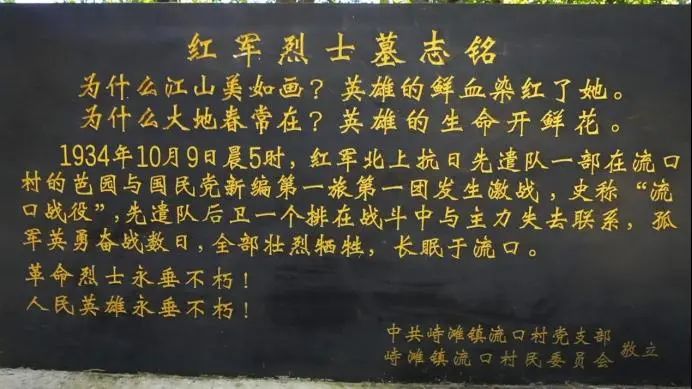 红军烈士墓志铭
为什么江山美如画？英雄的鲜血染红了她。
为什么大地春常在？英雄的生命开鲜花。
1934年10月9日晨5时，红军北上抗日先遣队一部在流口
村的芭园与国民党新编第一旅第一团发生激战，史称“流
口战役”，先遣队后卫一个排在战斗中与主力失去联系，孤
军英勇奋战数日，全部壮烈牺牲，长眠于流口。
革命烈士永垂不朽！
人民英雄永垂不朽！
中共峙滩镇流口村党支部
峙滩镇流口村民委员会 敬立